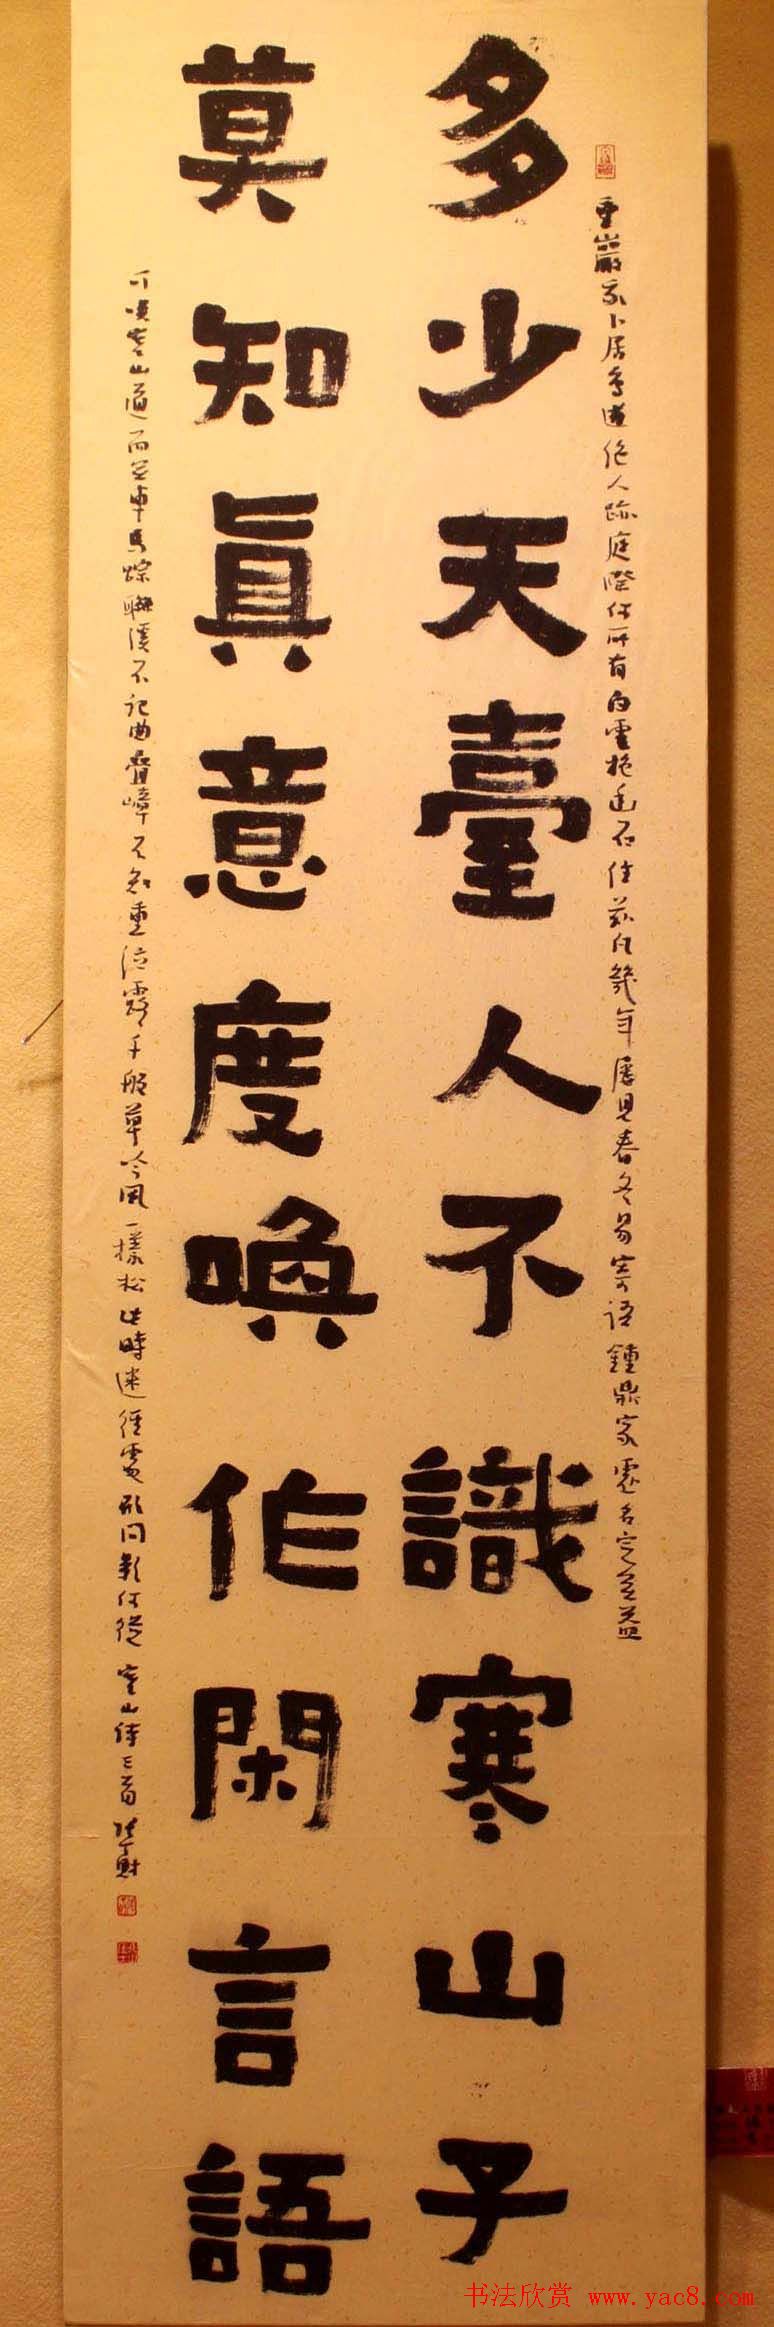 重巖我卜居鳥道絶人跡庭際何所有白雲抱幽石住茲凡幾年屢見春冬易寄語鍾鼎家虛名定無益
多少天臺人不識寒山子
莫知真意度喚作閑言語
可笑寒山道而無車馬蹤聯溪不記曲疊嶂不知重泣露千般草吟風一樣松此時迷徑處形問影何從 寒山詩三首
书法欣赏 www.yac8.com